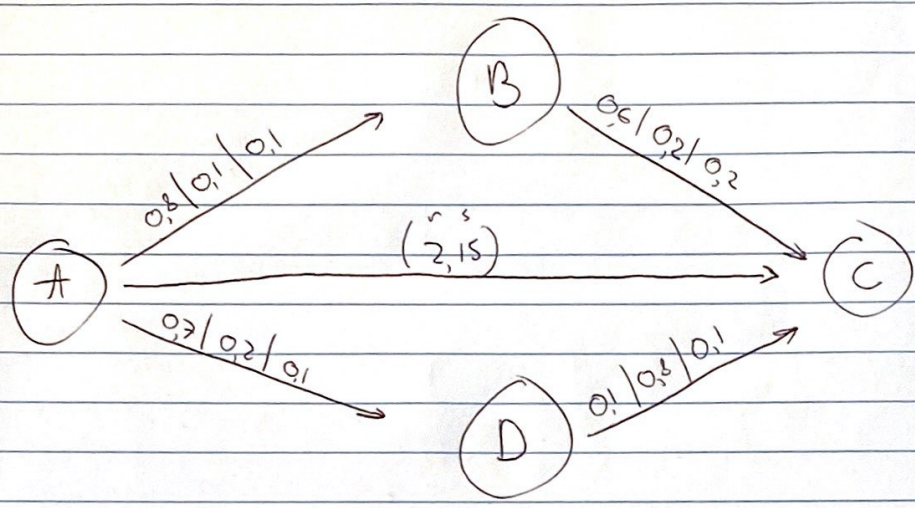 B
0,8|0,1|0,1
0,6|0,2|0,2
r s
(2,15)
A
C
0,7|0,2|0,1
0,1|0,8|0,1
D